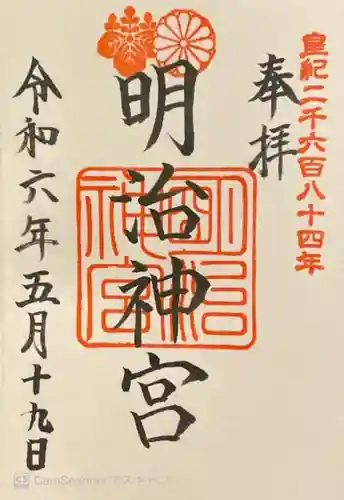 皇紀二千六百八十四年
奉拝
明治神宮
明治神宮
令和六年五月十九日
CS CamScannerでスキャン